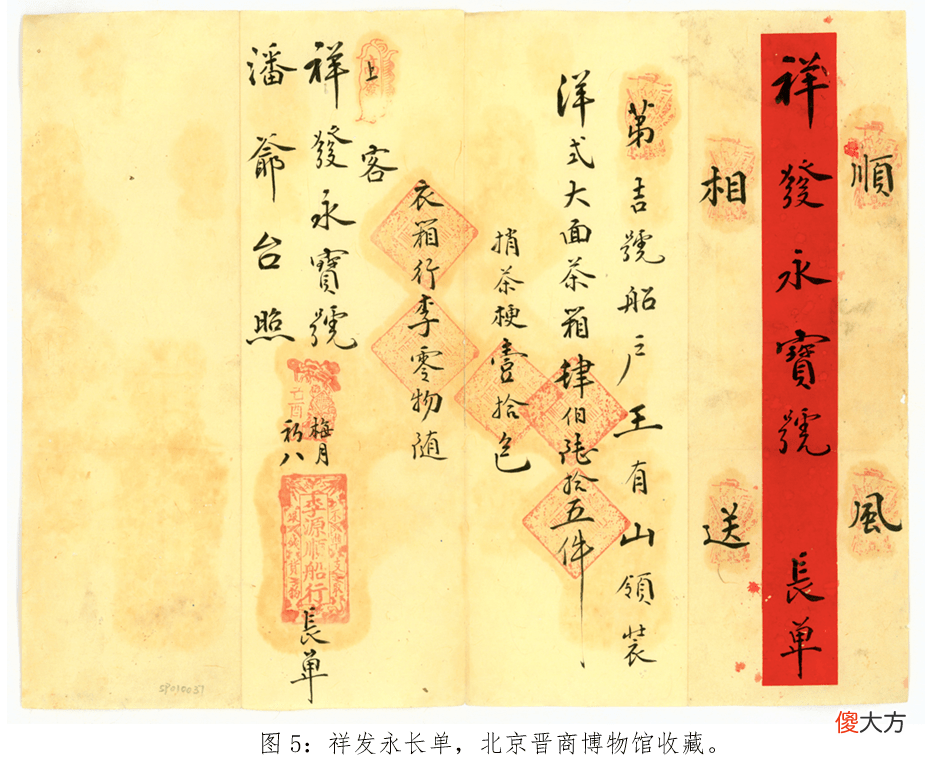 順風
祥發永寶號 長单
相送
第吉號船户王有山領裝
洋式大面茶箱肆佰陸拾五件
捎茶梗壹拾包
衣箱行李零物随
客
上
祥發永寶號
潘爺台照
梅月
初八
李源順船行
長单
SP010037
傻大方
图 5：祥发永长单，北京晋商博物馆收藏。